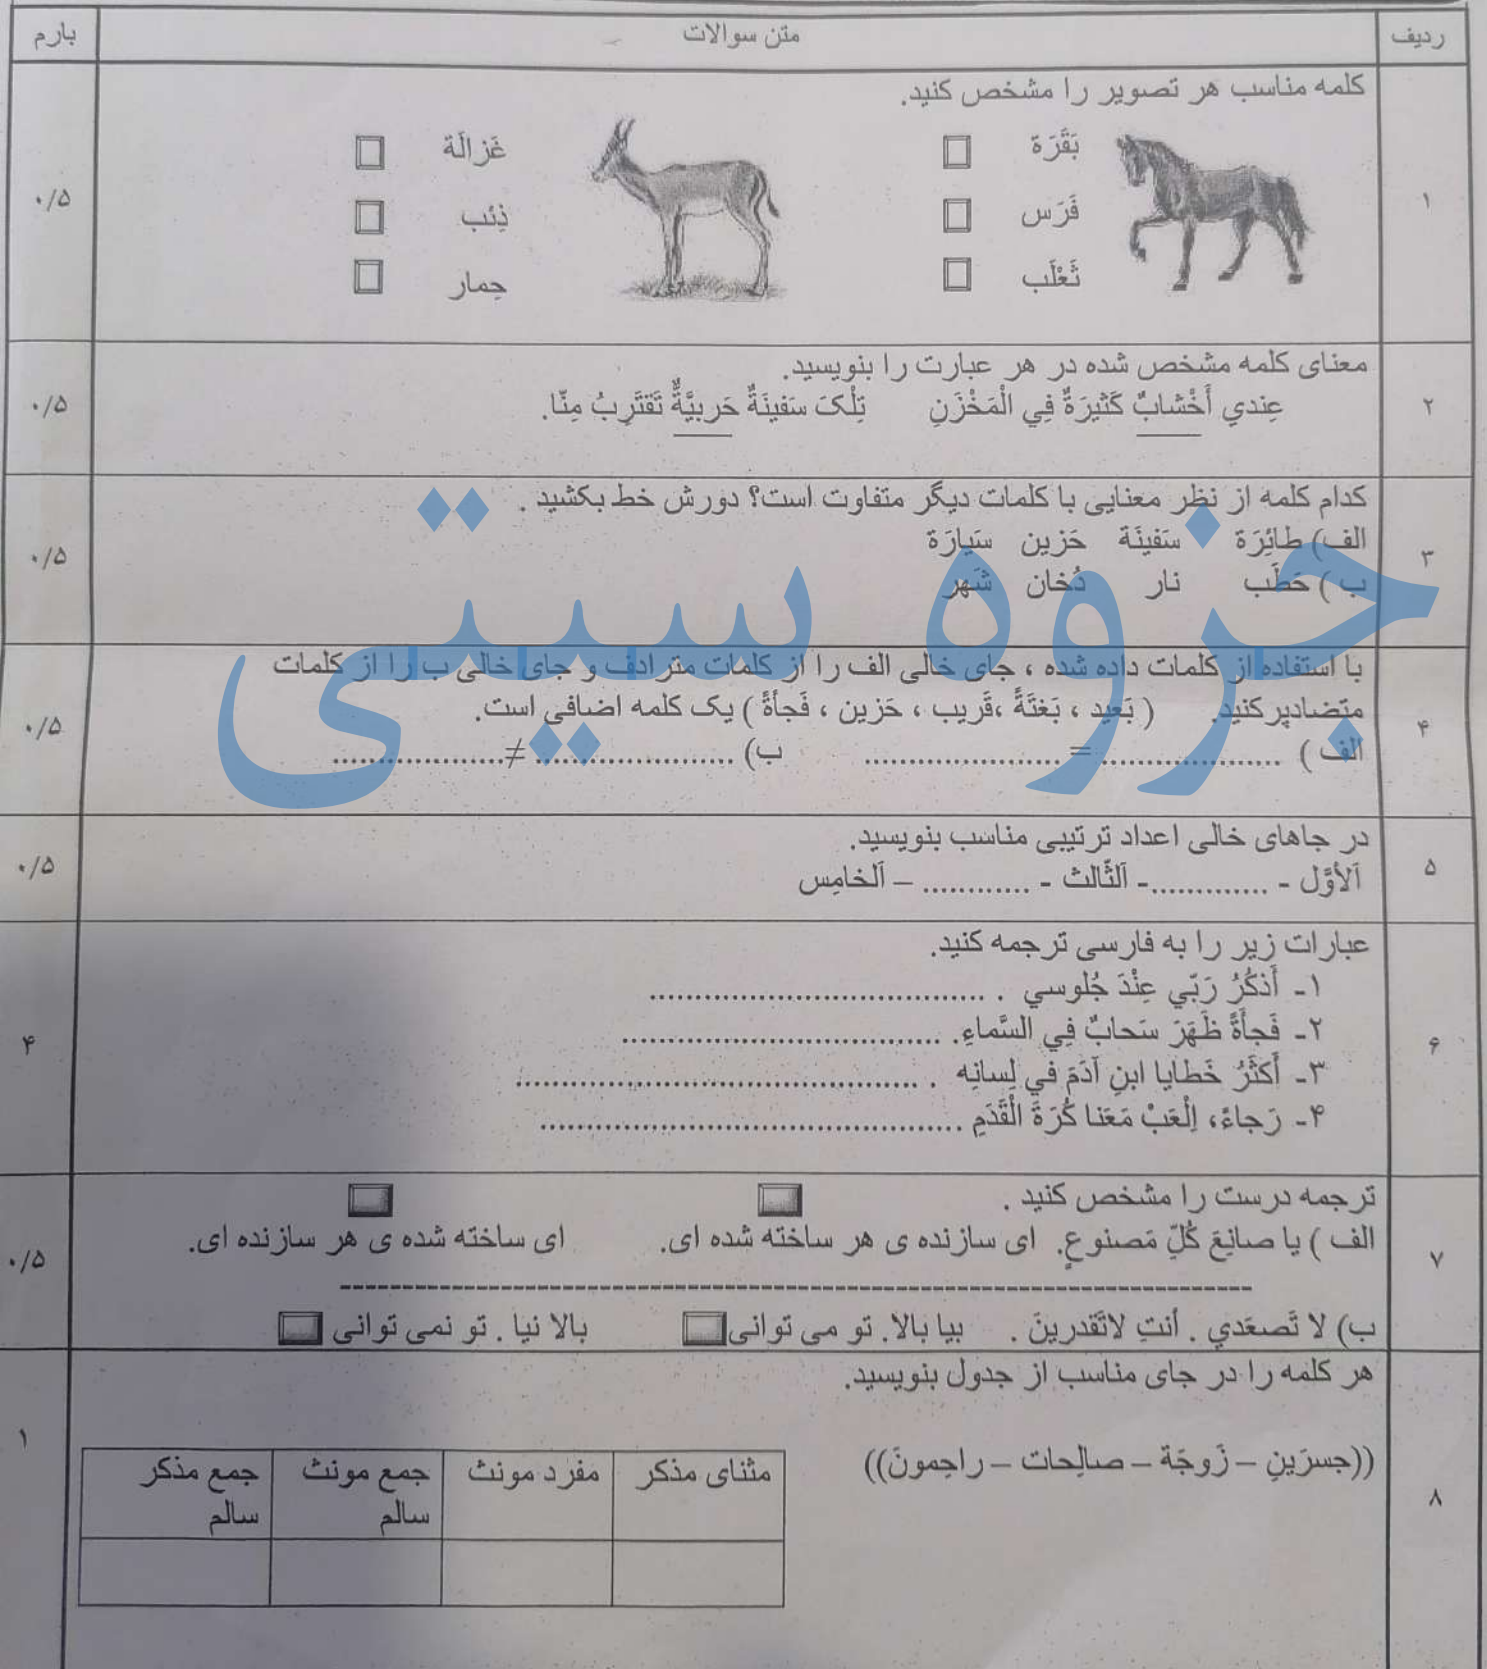 ردیف متن سوالات بارم
۱ کلمه مناسب هر تصویر را مشخص کنید. ۰/۵
بَقَرَة غَزالَة
فَرَس ذِئب
ثَعْلَب حِمار
۲ معنای کلمه مشخص شده در هر عبارت را بنویسید. ۰/۵
عِندي أَخْشابٌ كَثيرَةٌ فِي الْمَخْزَنِ تِلْکَ سَفینَةٌ حَربیَّةٌ تَقتَرِبُ مِنّا.
۳ کدام کلمه از نظر معنایی با کلمات دیگر متفاوت است؟ دورش خط بکشید . ۰/۵
الف) طائِرَة سَفینَة حَزین سَیارَة
ب ) حَطَب نار دُخان شَهر
جزوه سیتی
۴ با استفاده از کلمات داده شده ، جای خالی الف را از کلمات مترادف و جای خالی ب را از کلمات ۰/۵
متضادپرکنید. ( بَعید ، بَغتَةً ،قَریب ، حَزین ، فَجأةً ) یک کلمه اضافی است.
الف ) ..................... = ...................... ب) ......................≠....................
۵ در جاهای خالی اعداد ترتیبی مناسب بنویسید. ۰/۵
اَلأوَّل - .............- اَلثّالث - ............ – اَلخامِس
۶ عبارات زیر را به فارسی ترجمه کنید. ۴
۱- أَذكُرُ رَبّي عِنْدَ جُلوسي . ......................................
۲- فَجأَةً ظَهَرَ سَحابٌ فِي السَّماءِ. ....................................
۳- أَكثَرُ خَطايا ابنِ آدَمَ في لِسانِه . .............................................
۴- رَجاءً، اِلْعَبْ مَعَنا كُرَةَ الْقَدَمِ ...............................................
۷ ترجمه درست را مشخص کنید . ۰/۵
الف ) یا صانِعَ كُلِّ مَصنوعٍ. ای سازنده ی هر ساخته شده ای. ای ساخته شده ی هر سازنده ای.
ب) لا تَصعَدي . أنتِ لاتَقدرینَ . بیا بالا. تو می توانی بالا نیا . تو نمی توانی
۸ هر کلمه را در جای مناسب از جدول بنویسید. ۱
((جسرَینِ – زَوجَة – صالِحات – راحِمونَ))
مثنای مذکر مفرد مونث جمع مونث سالم جمع مذکر سالم